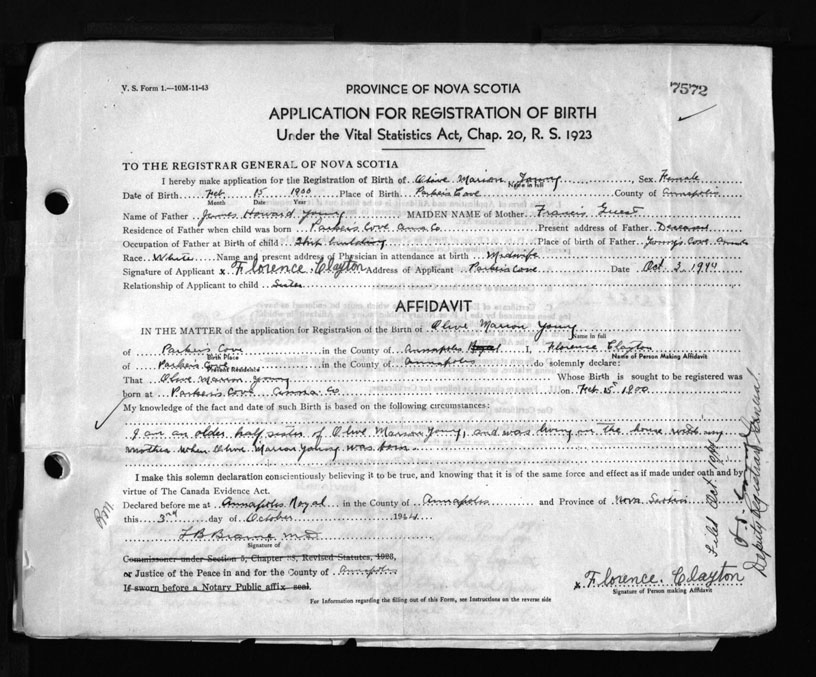 V. S. Form 1.—10M-11-43
PROVINCE OF NOVA SCOTIA
7572
APPLICATION FOR REGISTRATION OF BIRTH
Under the Vital Statistics Act, Chap. 20, R. S. 1923
TO THE REGISTRAR GENERAL OF NOVA SCOTIA
I hereby make application for the Registration of Birth of Olive Marion Young Sex Female
Name in full
Date of Birth Feb 15 1900 Place of Birth Parker's Cove County of Annapolis
Month Date Year
Name of Father James Howard Young MAIDEN NAME of Mother Francis Guest
Residence of Father when child was born Parkers Cove Anna Co. Present address of Father Deceased
Occupation of Father at Birth of child Ship building Place of birth of Father Young's Cove
Race White Name and present address of Physician in attendance at birth Midwife
Signature of Applicant x Florence Clayton Address of Applicant Parkers Cove Date Oct 3, 1944
Relationship of Applicant to child Sister
AFFIDAVIT
IN THE MATTER of the application for Registration of the Birth of Olive Marion Young
Name in full
of Parkers Cove in the County of Annapolis I, Florence Clayton
Birth Place Name of Person Making Affidavit
of Parkers Cove in the County of Annapolis do solemnly declare:
Present Residence
That Olive Marion Young Whose Birth is sought to be registered was
born at Parkers Cove Anna Co on Feb 15" 1900
My knowledge of the fact and date of such Birth is based on the following circumstances:
I am an older half sister of Olive Marion Young, and was living in the house with my
mother when Olive Marion Young was born.
I make this solemn declaration conscientiously believing it to be true, and knowing that it is of the same force and effect as if made under oath and by
virtue of The Canada Evidence Act.
Declared before me at Annapolis Royal in the County of Annapolis and Province of Nova Scotia
this 3rd day of October 1944
L B Braine M D
Signature of
Commissioner under Section 5, Chapter 38, Revised Statutes, 1923,
or Justice of the Peace in and for the County of Annapolis
If sworn before a Notary Public affix seal.
x Florence Clayton
Signature of Person making Affidavit
For Information regarding the filling out of this Form, see Instructions on the reverse side
Filed Oct
Deputy Registrar General